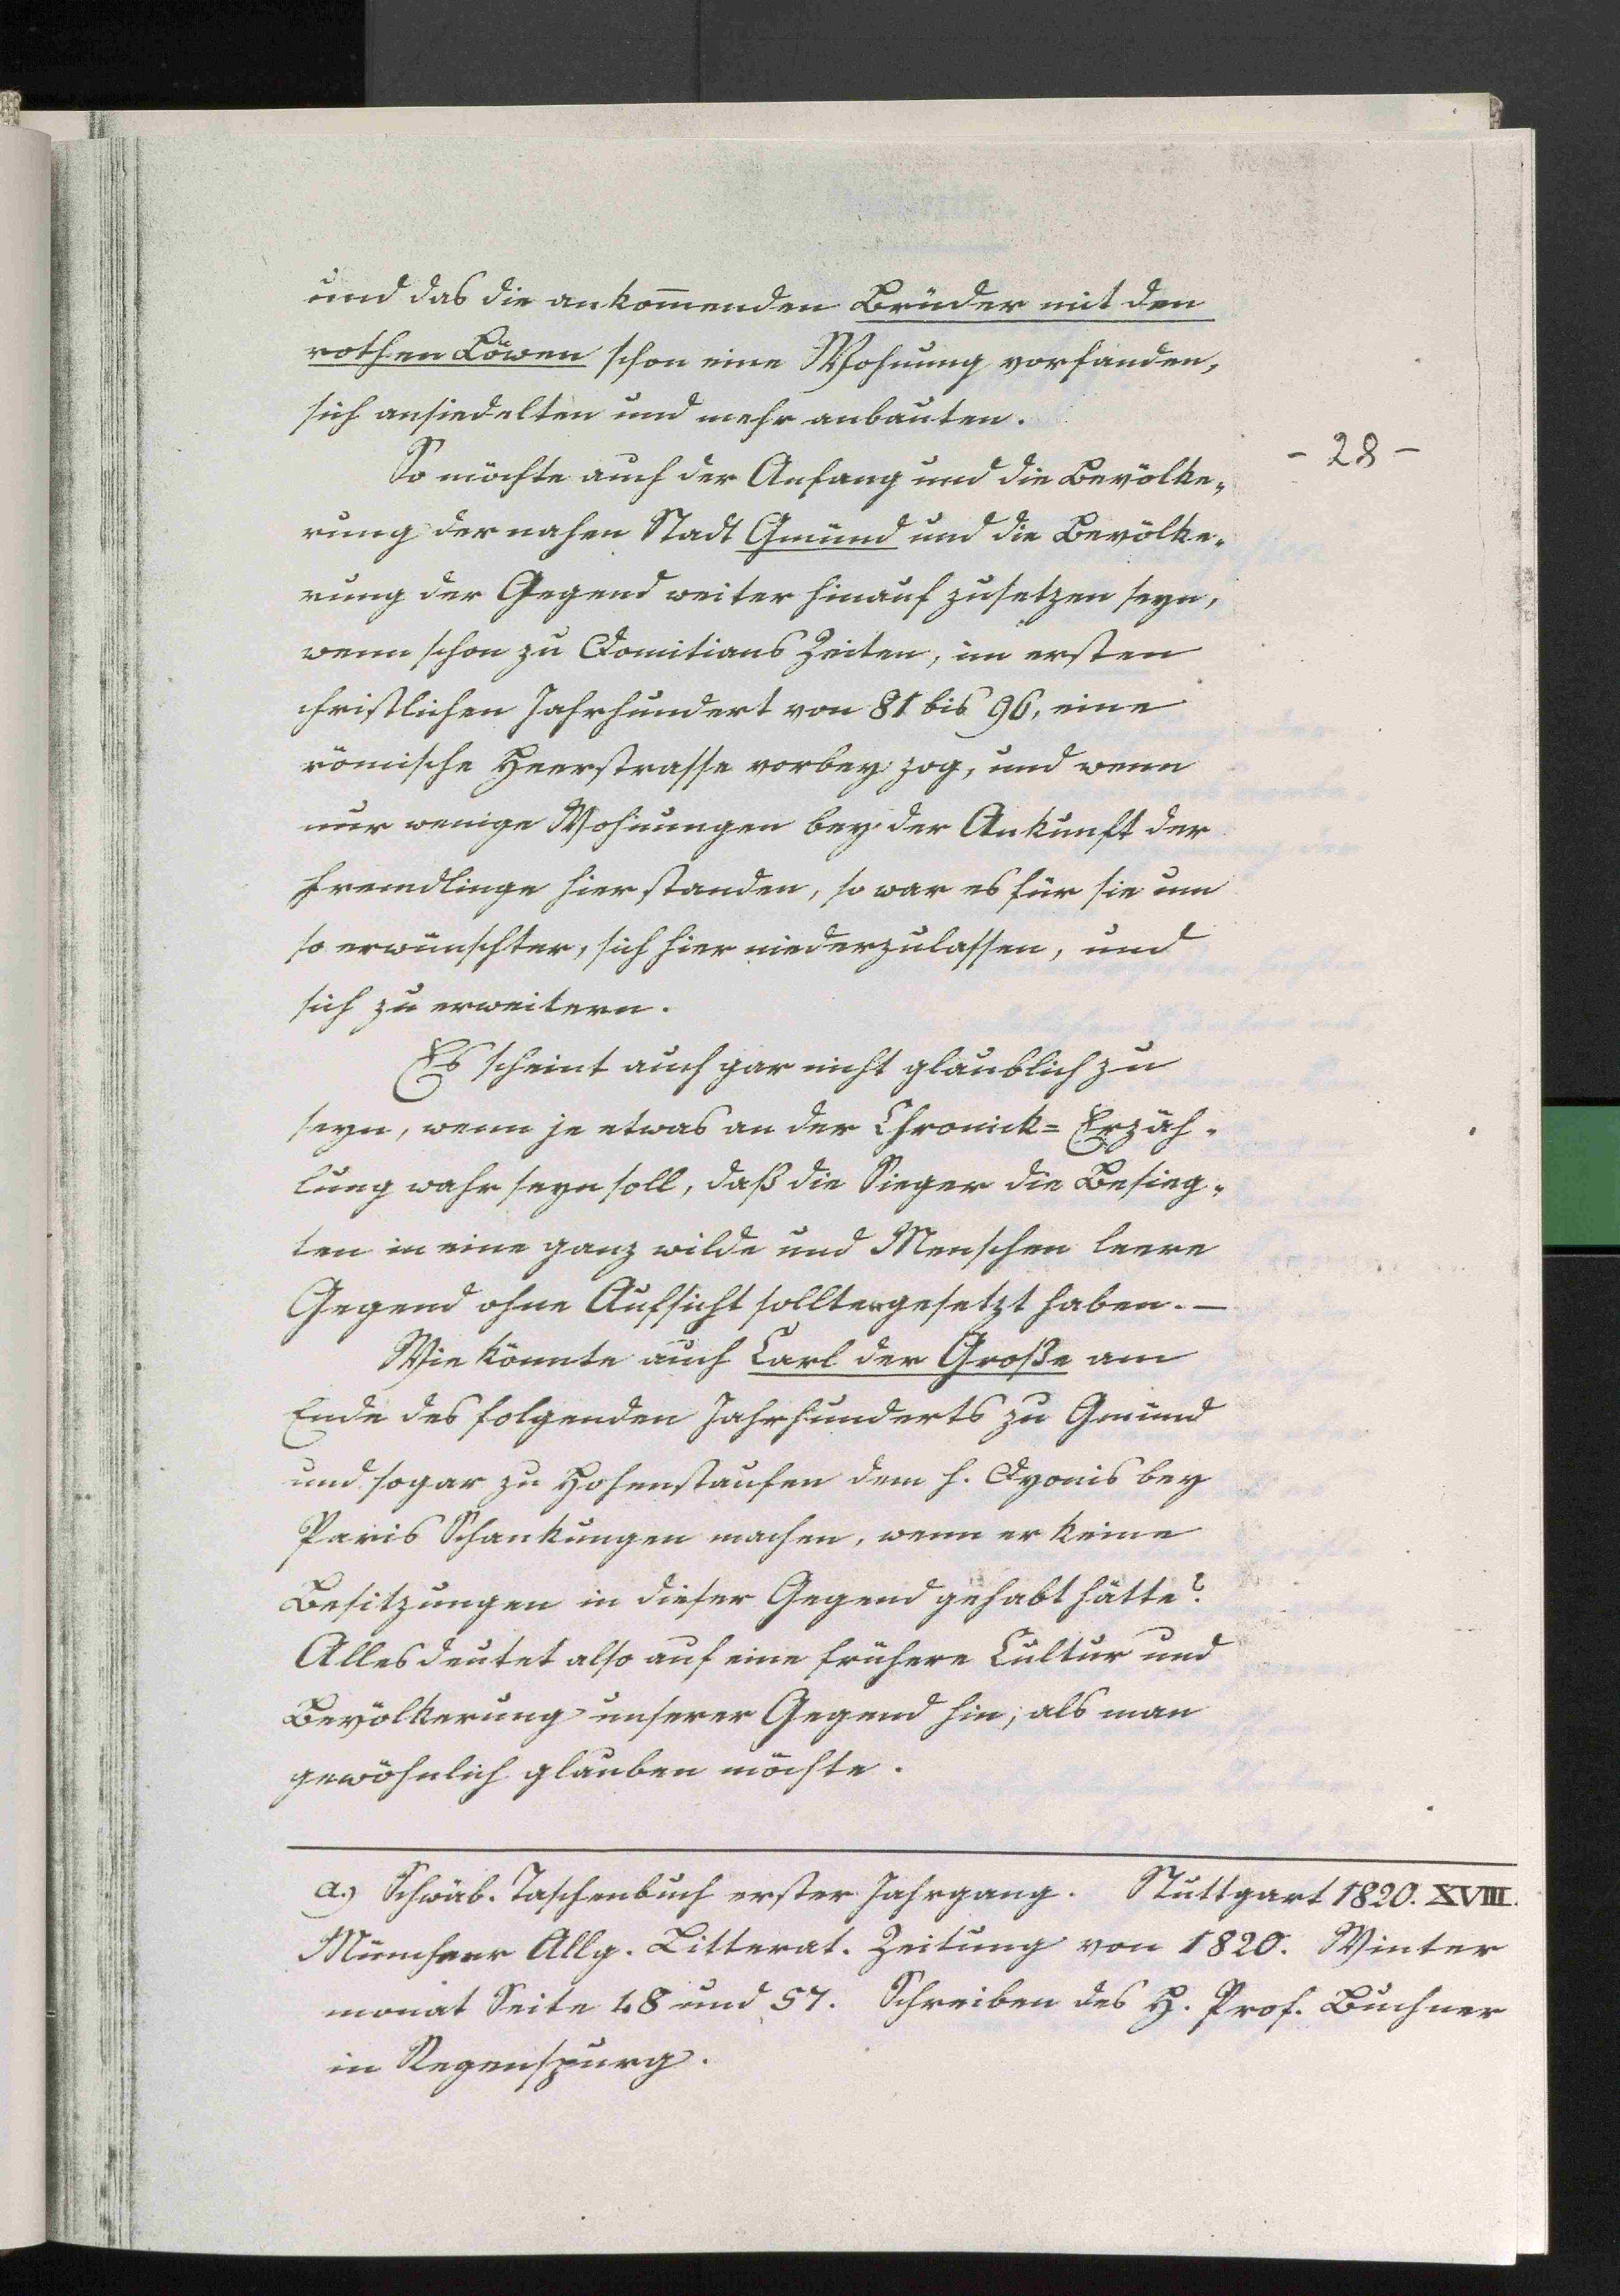 und das die ankom̄enden Brüder mit den
rothen Löwen schon eine Wohnung vorfanden,
sich ansiedelten und mehr anbauten.
- 28 -
So möchte auch der Anfang und die Bevölke„
rung der nahen Stadt Gmünd und die Bevölke„
rung der Gegend weiter hinauf zusetzen seyn,
wenn schon zu Domitians Zeiten, im ersten
christlichen Jahrhundert von 81 bis 96, eine
römische Heerstrasse vorbey zog, und wenn
nur wenige Wohnungen bey der Ankunft der
Fremdlinge hier standen, so war es für sie um
so erwünschter, sich hier niederzulassen, und
sich zu erweitern.
Es scheint auch gar nicht glaublich zu
seyn, wenn je etwas an der Chronick= Erzäh„
lung wahr seyn soll, daß die Sieger die Besieg„
ten in eine ganz wilde und Menschen leere
Gegend ohne Aufsicht sollten gesetzt haben. —
Wie könnte auch Carl der Große am
Ende des folgenden Jahrhunderts zu Gmünd
und sogar zu Hohenstaufen dem h. Dyonis bey
Paris Schankungen machen, wenn er keine
Besitzungen in dieser Gegend gehabt hätte?
Alles deutet also auf eine frühere Cultur und
Bevölkerung unserer Gegend hin, als man
gewöhnlich glauben möchte.
a.) Schwäb. Taschenbuch erster Jahrgang. Stuttgart 1820. XVIII.
Münchner Allg. Litterat. Zeitung von 1820. Winter
monat Seite 48 und 57. Schreiben des H. Prof. Buchner
in Regenspurg.